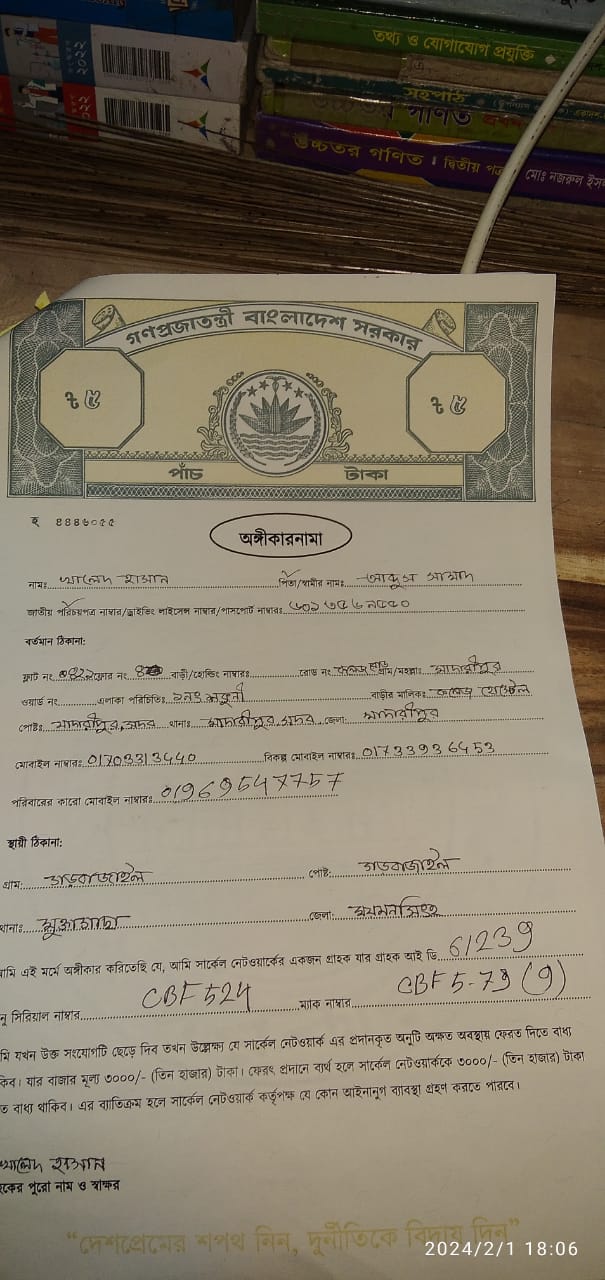 ২০২২
২০২২
তথ্য ও যোগাযোগ প্রযুক্তি
সহপাঠ
গণিত
উচ্চতর গণিত : দ্বিতীয় পত্র
মোঃ নজরুল ইস
গণপ্রজাতন্ত্রী বাংলাদেশ সরকার
৳ ৫
৳ ৫
পাঁচ টাকা
হ ৪৪৪৬০৫৫
অঙ্গীকারনামা
নামঃ খালেদ হাসান পিতা/স্বামীর নামঃ আব্দুস সামাদ
জাতীয় পরিচয়পত্র নাম্বার/ড্রাইভিং লাইসেন্স নাম্বার/পাসপোর্ট নাম্বারঃ
বর্তমান ঠিকানা:
ফ্লাট নং ফ্লোর নং বাড়ী/হোল্ডিং নাম্বারঃ রোড নং কলেজ রোড গ্রাম/মহল্লাঃ মাদারীপুর
ওয়ার্ড নং এলাকা পরিচিতিঃ বাড়ীর মালিকঃ কলেজ হোস্টেল
পোষ্টঃ মাদারীপুর, সদর থানাঃ মাদারীপুর, সদর, জেলাঃ মাদারীপুর
মোবাইল নাম্বারঃ 01703313440 বিকল্প মোবাইল নাম্বারঃ 01733936453
পরিবারের কারো মোবাইল নাম্বারঃ 01969547757
স্থায়ী ঠিকানা:
গ্রামঃ পোষ্টঃ
থানাঃ মুক্তাগাছা জেলাঃ ময়মনসিংহ
মি এই মর্মে অঙ্গীকার করিতেছি যে, আমি সার্কেল নেটওয়ার্কের একজন গ্রাহক যার গ্রাহক আই ডি 61239
নু সিরিয়াল নাম্বার CBF 524 ম্যাক নাম্বার CBF 5-79 (9)
মি যখন উক্ত সংযোগটি ছেড়ে দিব তখন উল্লেক্ষ্য যে সার্কেল নেটওয়ার্ক এর প্রদানকৃত অনুটি অক্ষত অবস্থায় ফেরত দিতে বাধ্য
কিব। যার বাজার মূল্য ৩০০০/- (তিন হাজার) টাকা। ফেরৎ প্রদানে ব্যর্থ হলে সার্কেল নেটওয়ার্ককে ৩০০০/- (তিন হাজার) টাকা
ত বাধ্য থাকিব। এর ব্যতিক্রম হলে সার্কেল নেটওয়ার্ক কর্তৃপক্ষ যে কোন আইনানুগ ব্যবস্থা গ্রহণ করতে পারবে।
খালেদ হাসান
হকের পুরো নাম ও স্বাক্ষর
“দেশপ্রেমের শপথ নিন, দুর্নীতিকে বিদায় দিন”
2024/2/1 18:06